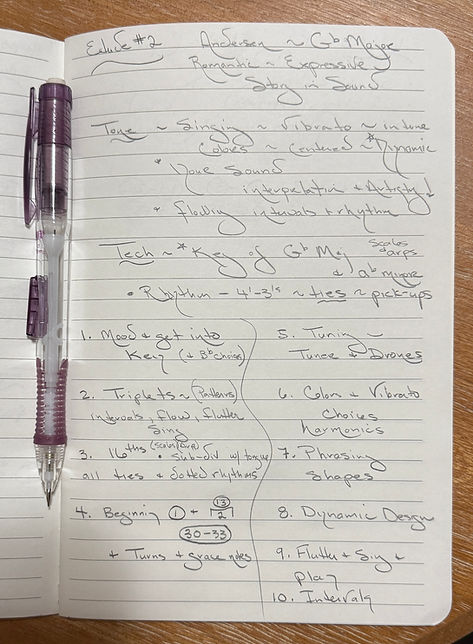 Etude #2 Andersen ~ Gb Major
Romantic ~ Expressive
Story in Sound
Tone ~ Singing ~ Vibrato ~ in tune
Colors ~ Centered ~ *Dynamic
* Your Sound
interpretation & Artistry
* flowing intervals & rhythm
Tech ~ * Key of Gb Maj Scales & arps
& ab minor
• Rhythm - 4's - 3's ~ ties ~ pick-ups
1. Mood & get into
Key (& Bb choices)
2. Triplets ~ (Patterns)
intervals, flow, flutter
Sing
3. 16ths (scales/arp) • Sub-div w/ tongue
all ties & dotted rhythms
4. Beginning 1 + 13
2
30-33
+ Turns & grace notes
5. Tuning ~
Tuner & Drones
6. Colors & Vibrato
Choices
Harmonics
7. Phrasing
Shapes
8. Dynamic Design
9. Flutter & Sing &
play
10. Intervals